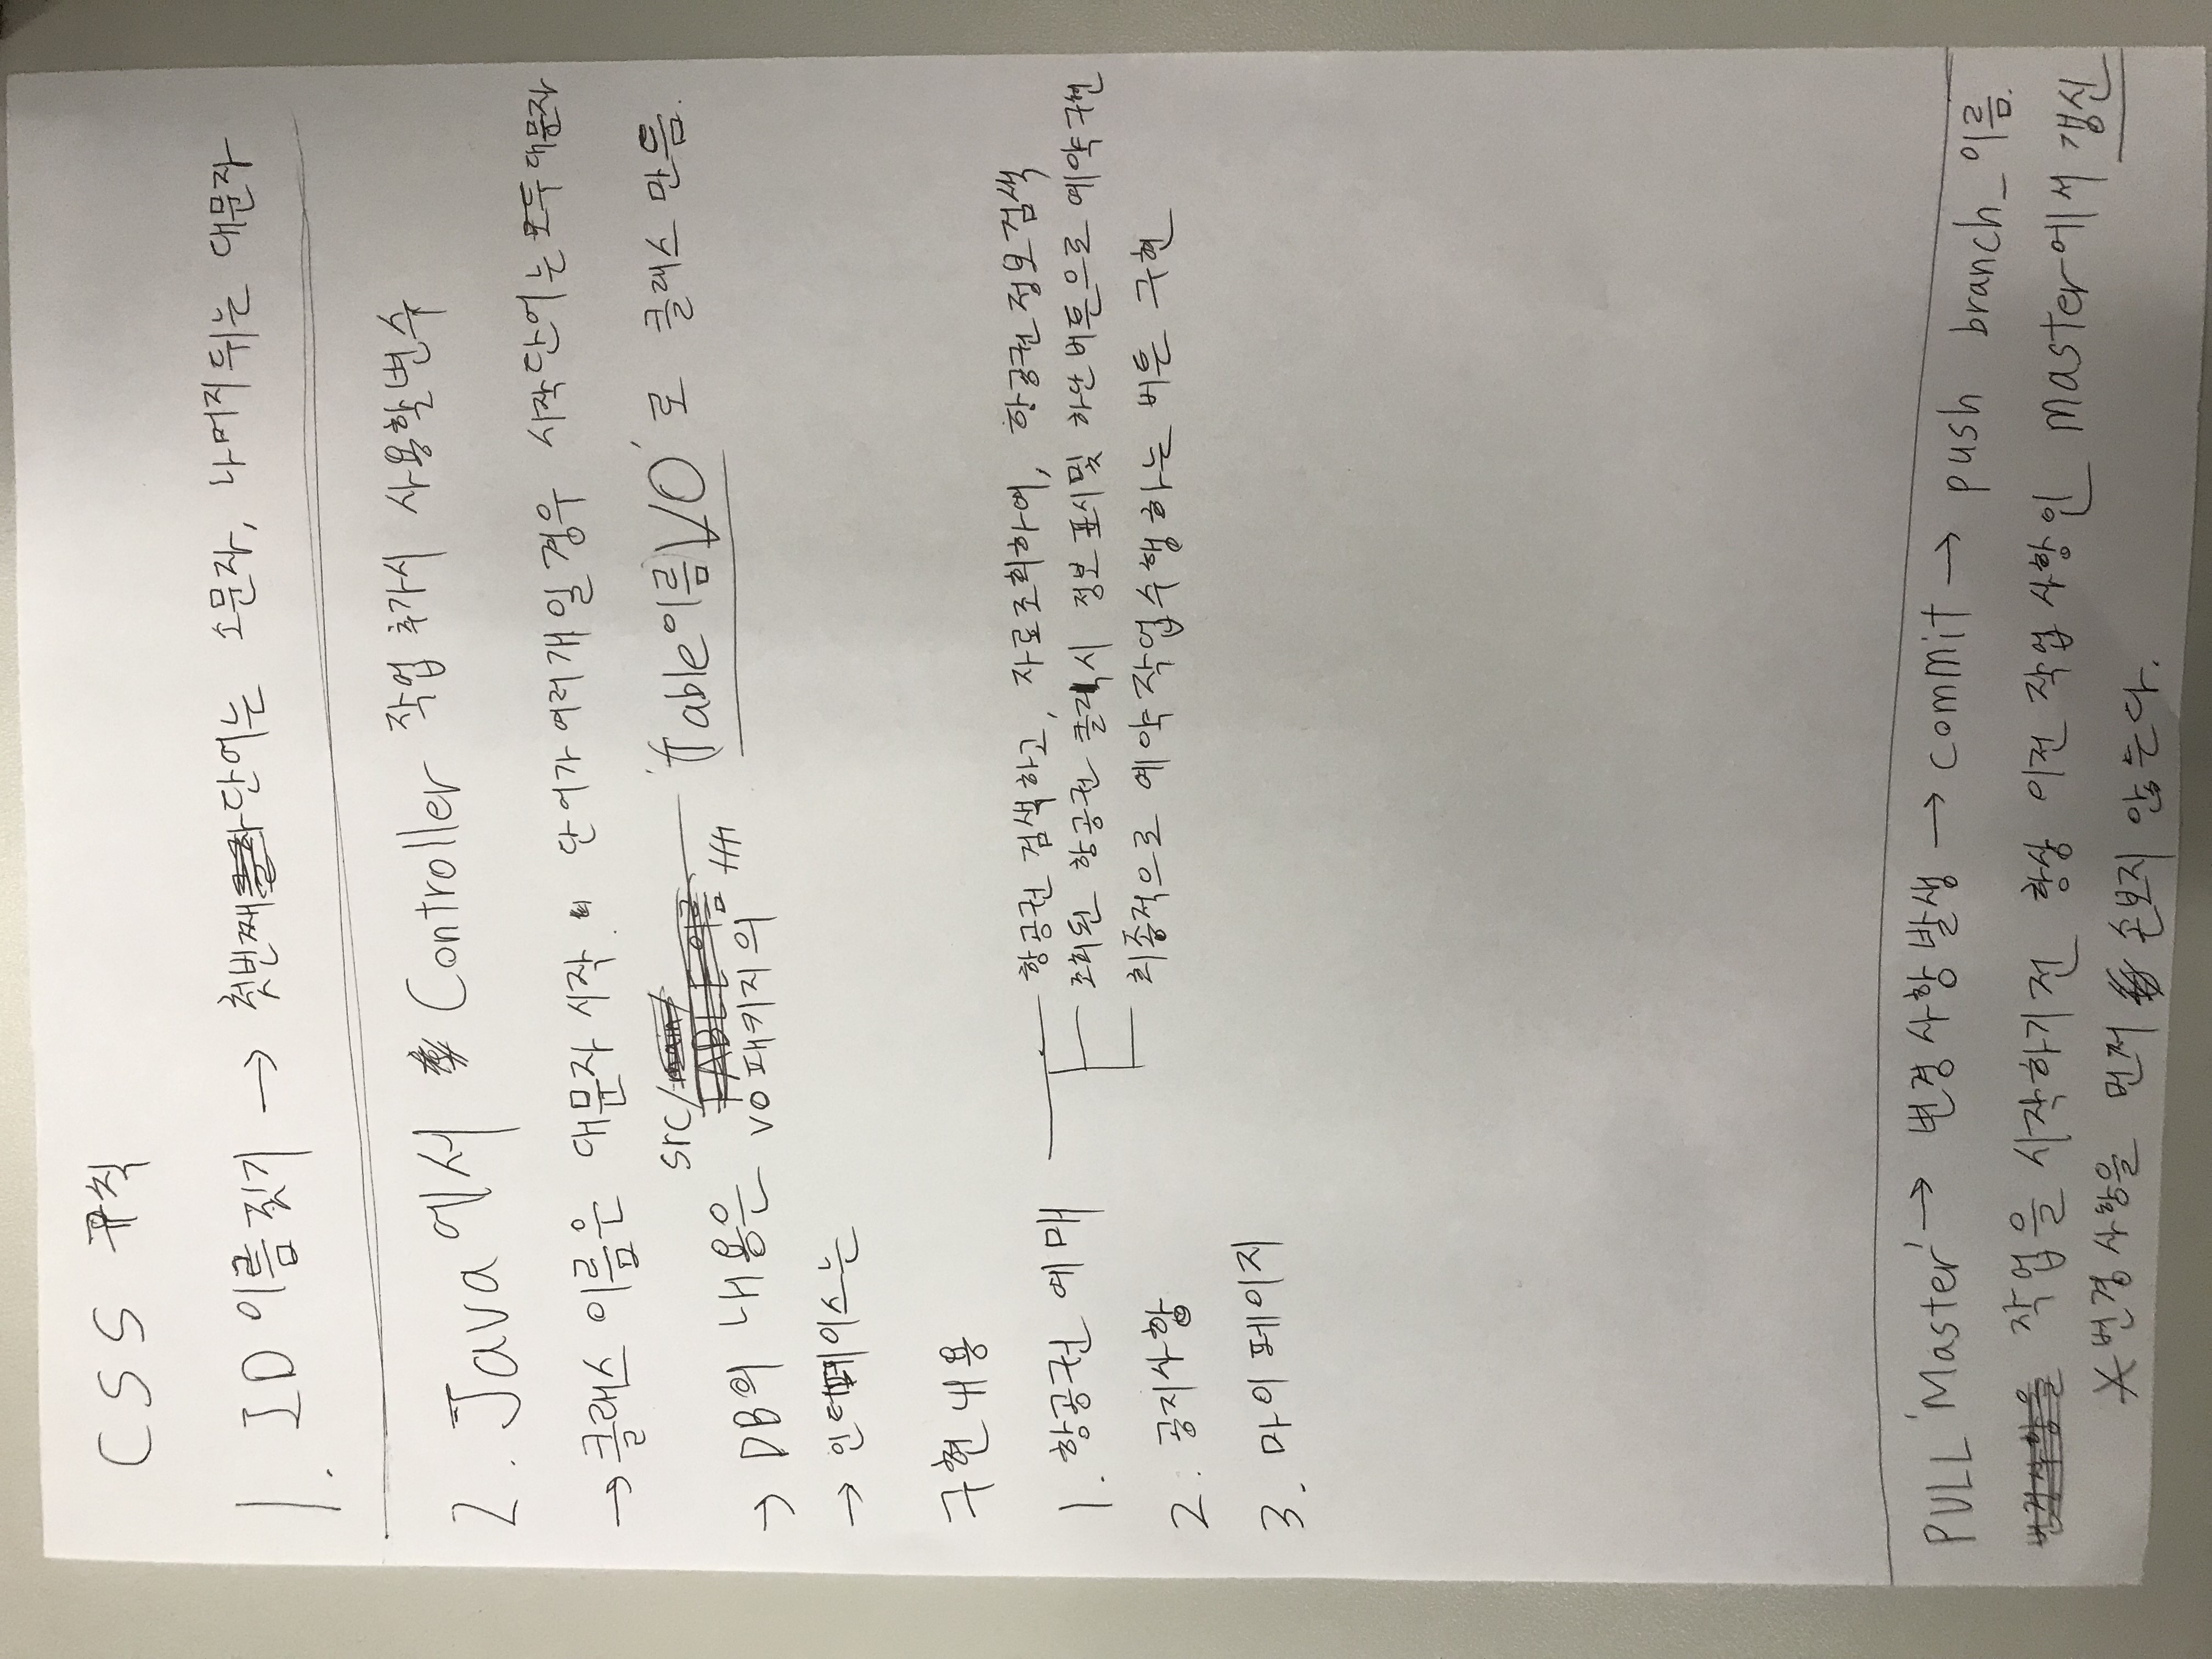 CSS 규칙
1. ID 이름 짓기 → 첫번째 단어는 소문자, 나머지 뒤는 대문자
2. Java 에서 Controller 작업 추가시 사용할 변수
→ 클래스 이름은 대문자 시작. 단어가 여러개일 경우 시작단어는 모두 대문자
→ DB의 내용은 src/ vo 패키지의 'Table이름VO'로 클래스 만듬.
→ 인터페이스는
구현 내용
1. 항공권 예매
항공권 검색하고, 자료조회하여, 항공권 정보검색
조회된 항공권 클릭시 정보 표시 및 하단 버튼으로 예약 구현
최종적으로 예약 작업 수행하는 버튼 구현
2. 공지사항
3. 마이 페이지
PULL 'Master' → 변경사항 발생 → commit → push branch_이름.
작업을 시작하기 전 항상 이전 작업 사항인 master에서 갱신
변경 사항을 먼저 손보지 않는다.